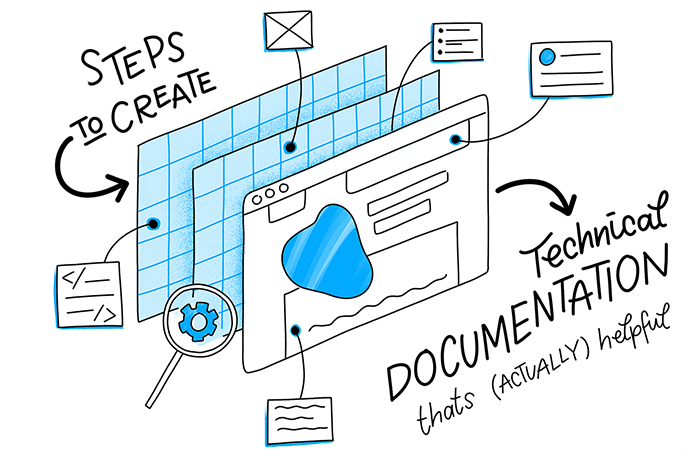 STEPS
TO CREATE
Technical
DOCUMENTATION
thats (ACTUALLY) helpful
<//>
/>